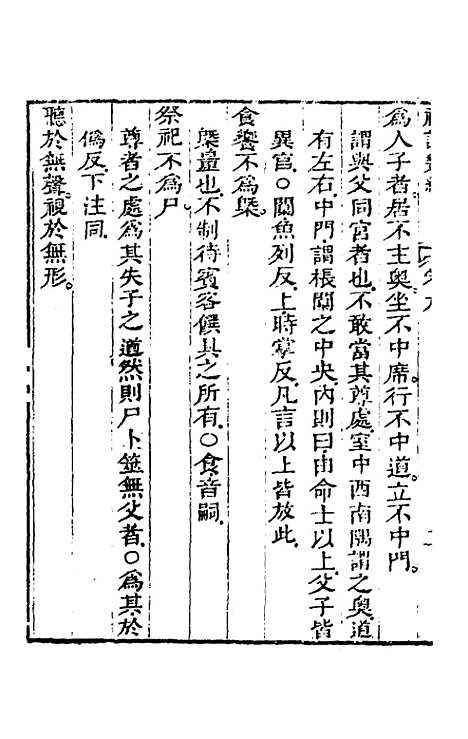 爲人子者居不主奧坐不中席。行不中道。立不中門。
謂與父同宮者也。不敢當其尊處。室中西南隅謂之奧道
有左右。中門謂棖闑之中央。內則曰由命士以上。父子皆
異宮。○闑魚列反。上時掌反。凡言以上皆放此。
食饗不爲槩。
槩量也。不制待賓客饌具之所有。○食音嗣。
祭祀不爲尸
尊者之處爲其失子之道然則尸卜筮無父者。○爲其於
僞反下注同。
聽於無聲。視於無形。